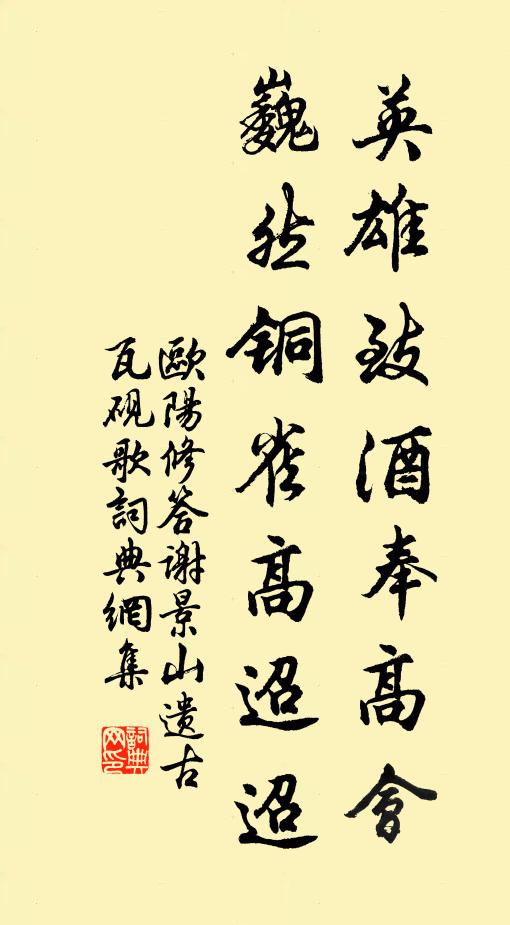 英雄致酒奉高會
巍然铜雀高迢迢
歐陽修答谢景山遗古
瓦砚歌詞典網集
詞典
网印